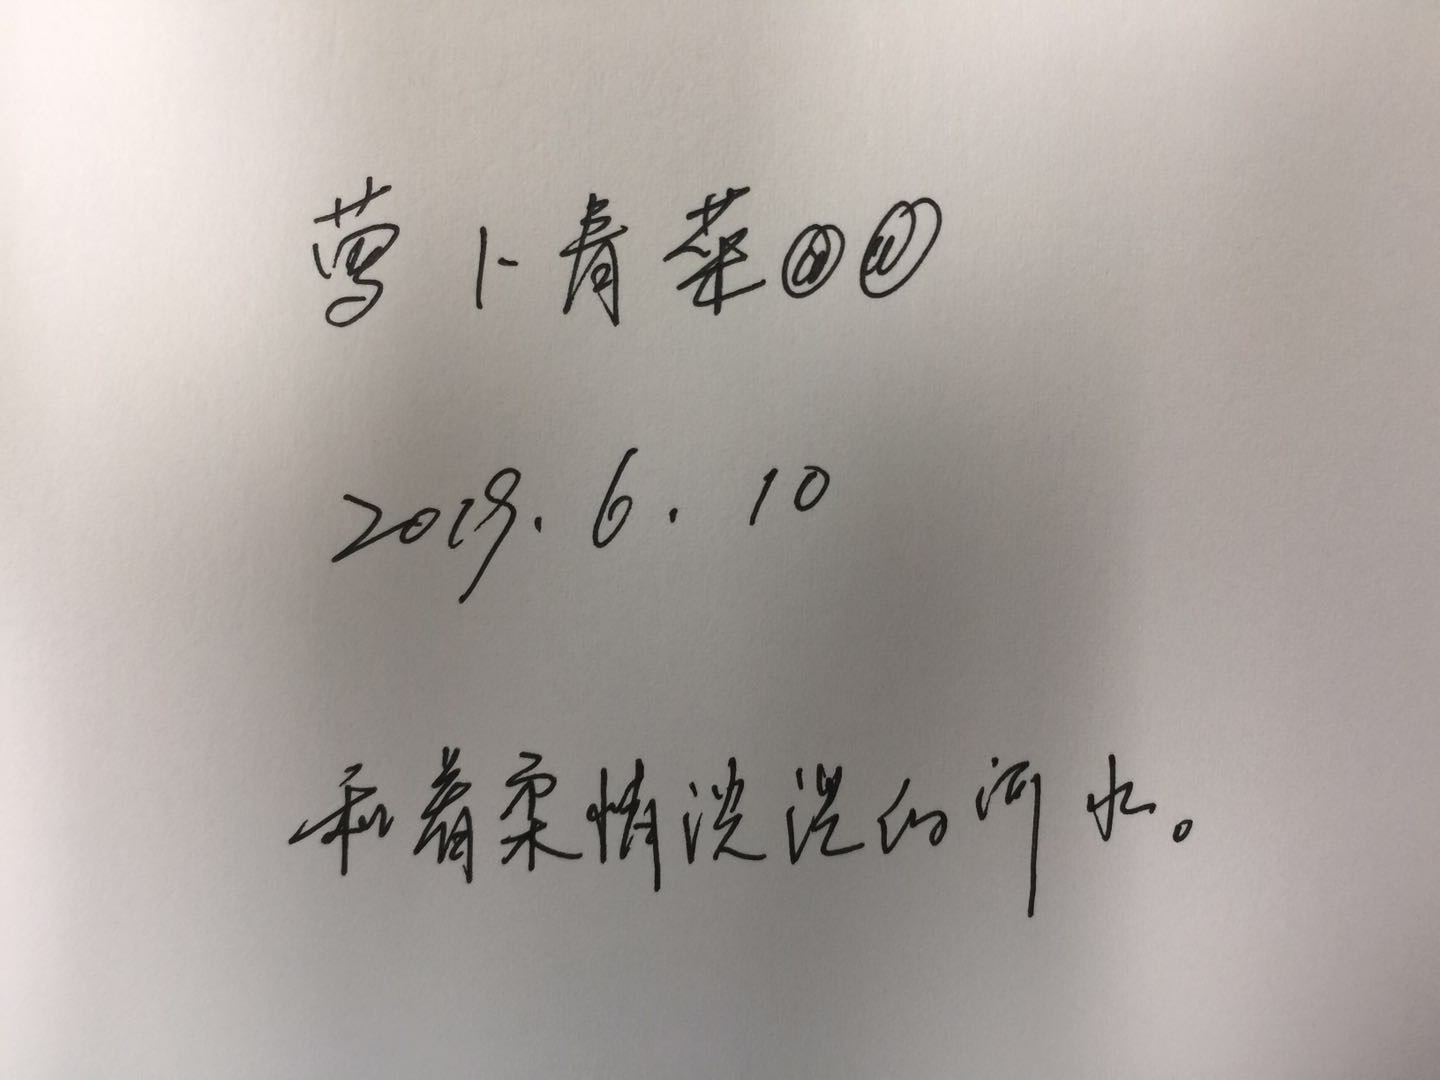 萝卜青菜
2019.6.10
和着柔情漫漫的河水。